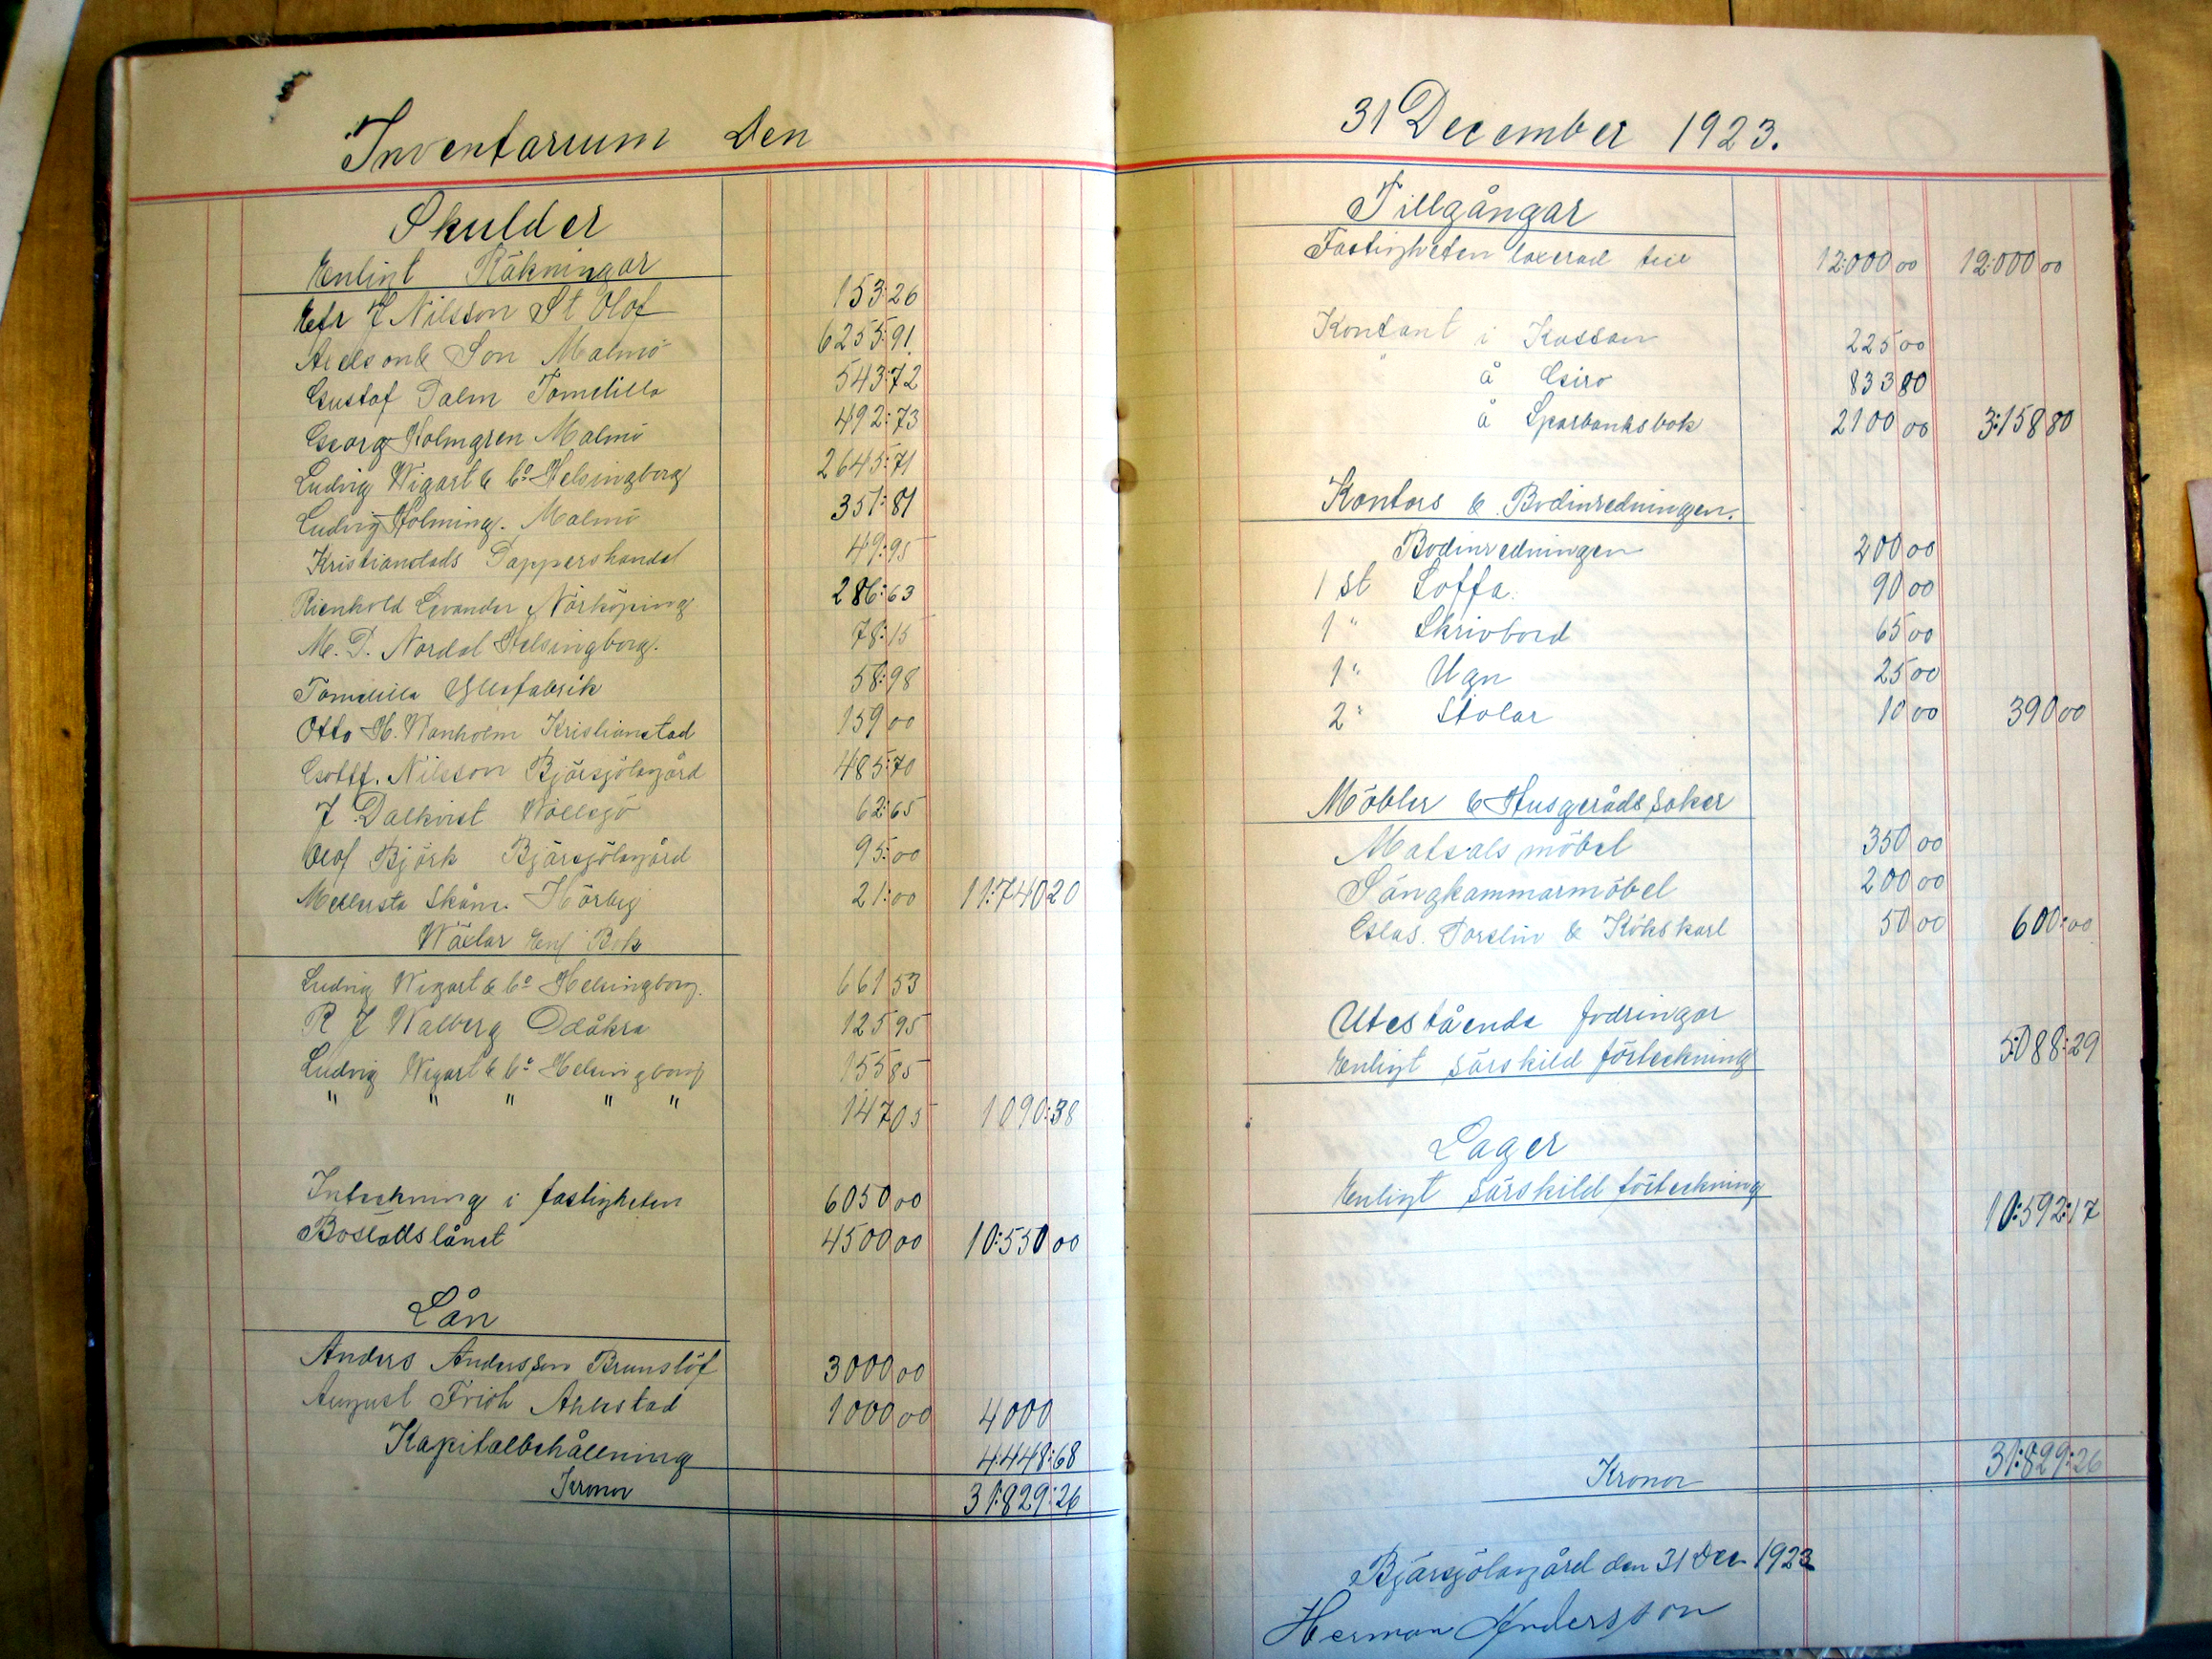 Inventarium Den
Skulder
Enligt Räkningar
Efr J Nilsson St Olof 153:26
& Son Malmö 6255:91
Gustaf Palm Tomelilla 543:72
Georg Holmgren Malmö 492:73
Ludvig Wigart & Co Helsingborg 2645:71
Ludvig Holming. Malmö 351:81
Kristianstads Pappershandel 49:95
Rienhold Levander Nörköping 286:63
M. P. Nordal Helsingborg. 78:15
Tomelilla Yllefabrik 58:98
Otto H. Wanholm Kristianstad 159 00
Gottf. Nilsson Bjärsjölagård 485:70
J Dalkvist Wollsjö 62:65
Olof Björk Bjärsjölagård 95:00
Mellersta Skåne. Hörby 21:00 11:740 20
Wäxlar Enl Bok
Ludvig Wigart & Co Helsingborg. 661 53
R J Walberg Ödåkra 125 95
Ludvig Wigart & Co Helsingborg 155 85
" " " " " 147 05 1090:38
Inteckning i fastigheten 6050 00
Bostadslånet 4500 00 10:550 00
Lån
Anders Andersson Brunslöf 3000 00
August Frich 1000 00 4000
Kapitalbehållning 4448:68
Kronor 31:829:26
31 December 1923.
Tillgångar
Fastigheten taxerad till 12:000 00 12:000 00
Kontant i Kassan 225 00
" å Giro 833 80
å Sparbanksbok 2100 00 3:158 80
Kontors & Bodinredningen.
Bodinredningen 200 00
1 st Soffa. 90 00
1 " Skrivbord 65 00
1 " Ugn 25 00
2 " Stolar 10 00 390 00
Möbler & Husgeråds saker
Matsals möbel 350 00
Sängkammarmöbel 200 00
Glas. Porslin & Kökskarl 50 00 600:00
Utestående fodringar
Enligt särskild förteckning 5:088:29
Lager
Enligt särskild förteckning 10:592:17
Kronor 31:829:26
Bjärsjölagård den 31 Dec 1923
Herman Andersson